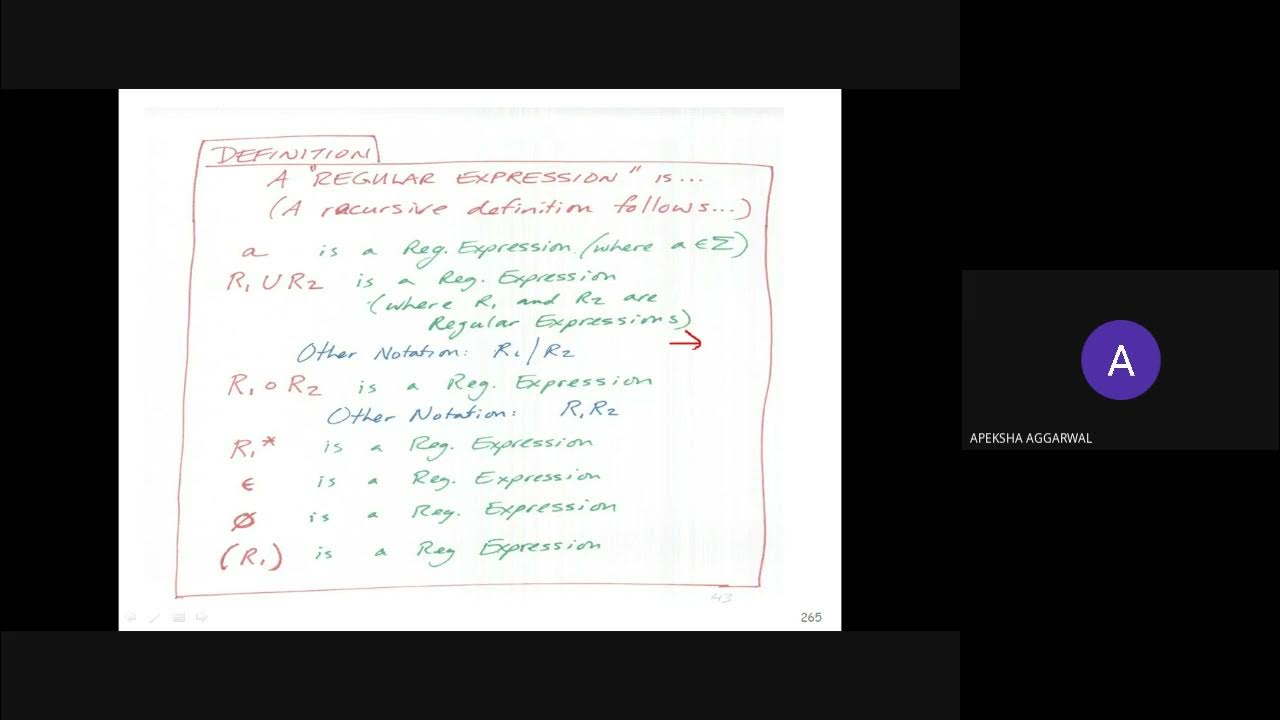 DEFINITION
A "REGULAR EXPRESSION" is...
(A recursive definition follows...)
a is a Reg. Expression (where a ∈ Σ)
R₁ ∪ R₂ is a Reg. Expression
(where R₁ and R₂ are
Regular Expressions)
Other Notation: R₁ | R₂
R₁ ∘ R₂ is a Reg. Expression
Other Notation: R₁R₂
R₁* is a Reg. Expression
ϵ is a Reg. Expression
∅ is a Reg. Expression
(R₁) is a Reg Expression
43
265
A
APEKSHA AGGARWAL